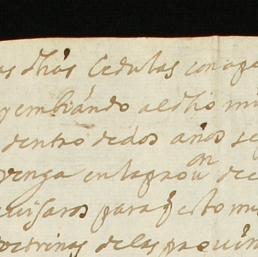 as dhas Cedulas con ape
y embiando al dho mi
dentro de dos años se
venga en la prouon de e
para q esto mu
doctrinas de las prouin